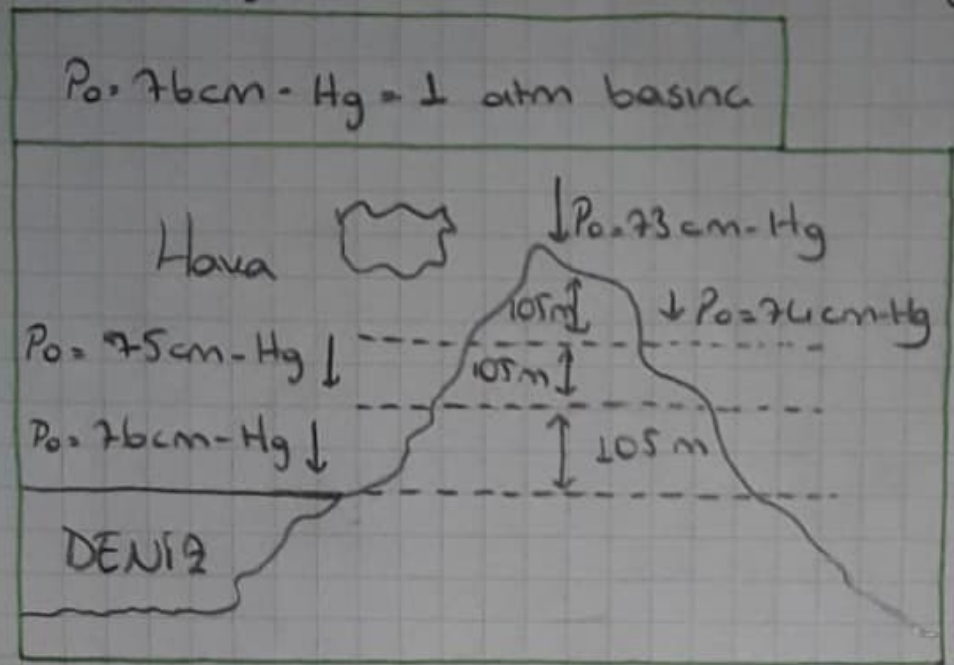 P₀ = 76 cm - Hg = 1 atm basınç
Hava
↓ P₀ = 73 cm - Hg
105m
↓ P₀ = 74 cm-Hg
P₀ = 75 cm - Hg ↓
105m
P₀ = 76 cm - Hg ↓
105 m
DENİZ